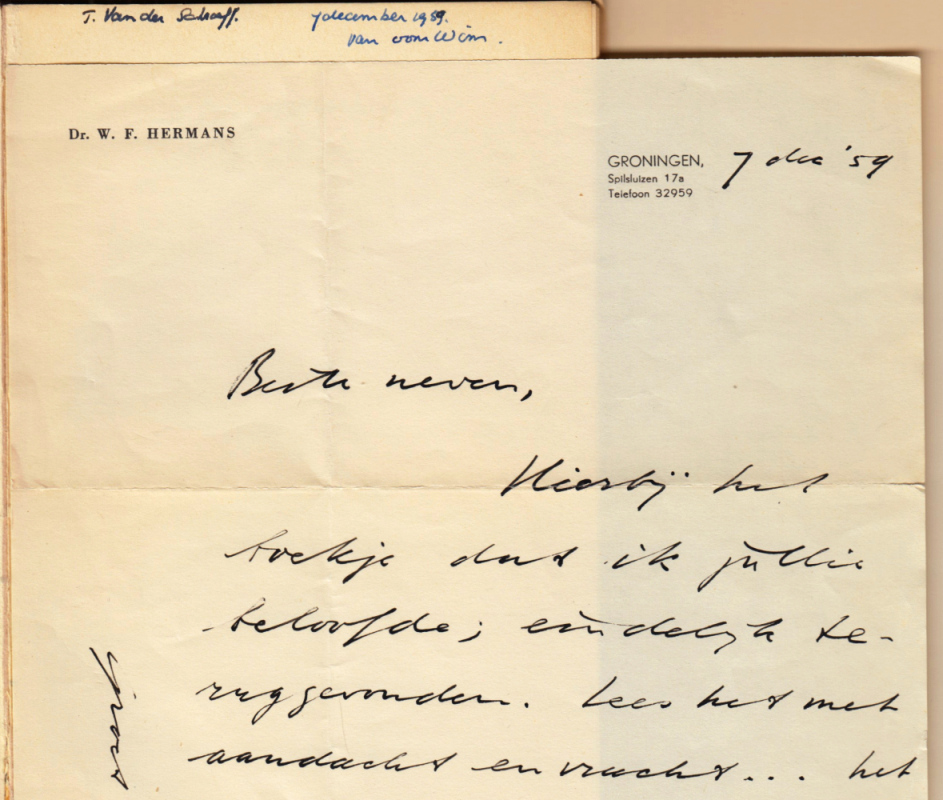 T. Van der Schaaff. 7 december 1959.
van oom Wim.
Dr. W. F. HERMANS
GRONINGEN, 7 dec '59
Spilsluizen 17a
Telefoon 32959
Beste neven,
Hierbij het
boekje dat ik jullie
beloofde; eindelijk te-
ruggevonden. Lees het met
aandacht en vrucht... het
groot